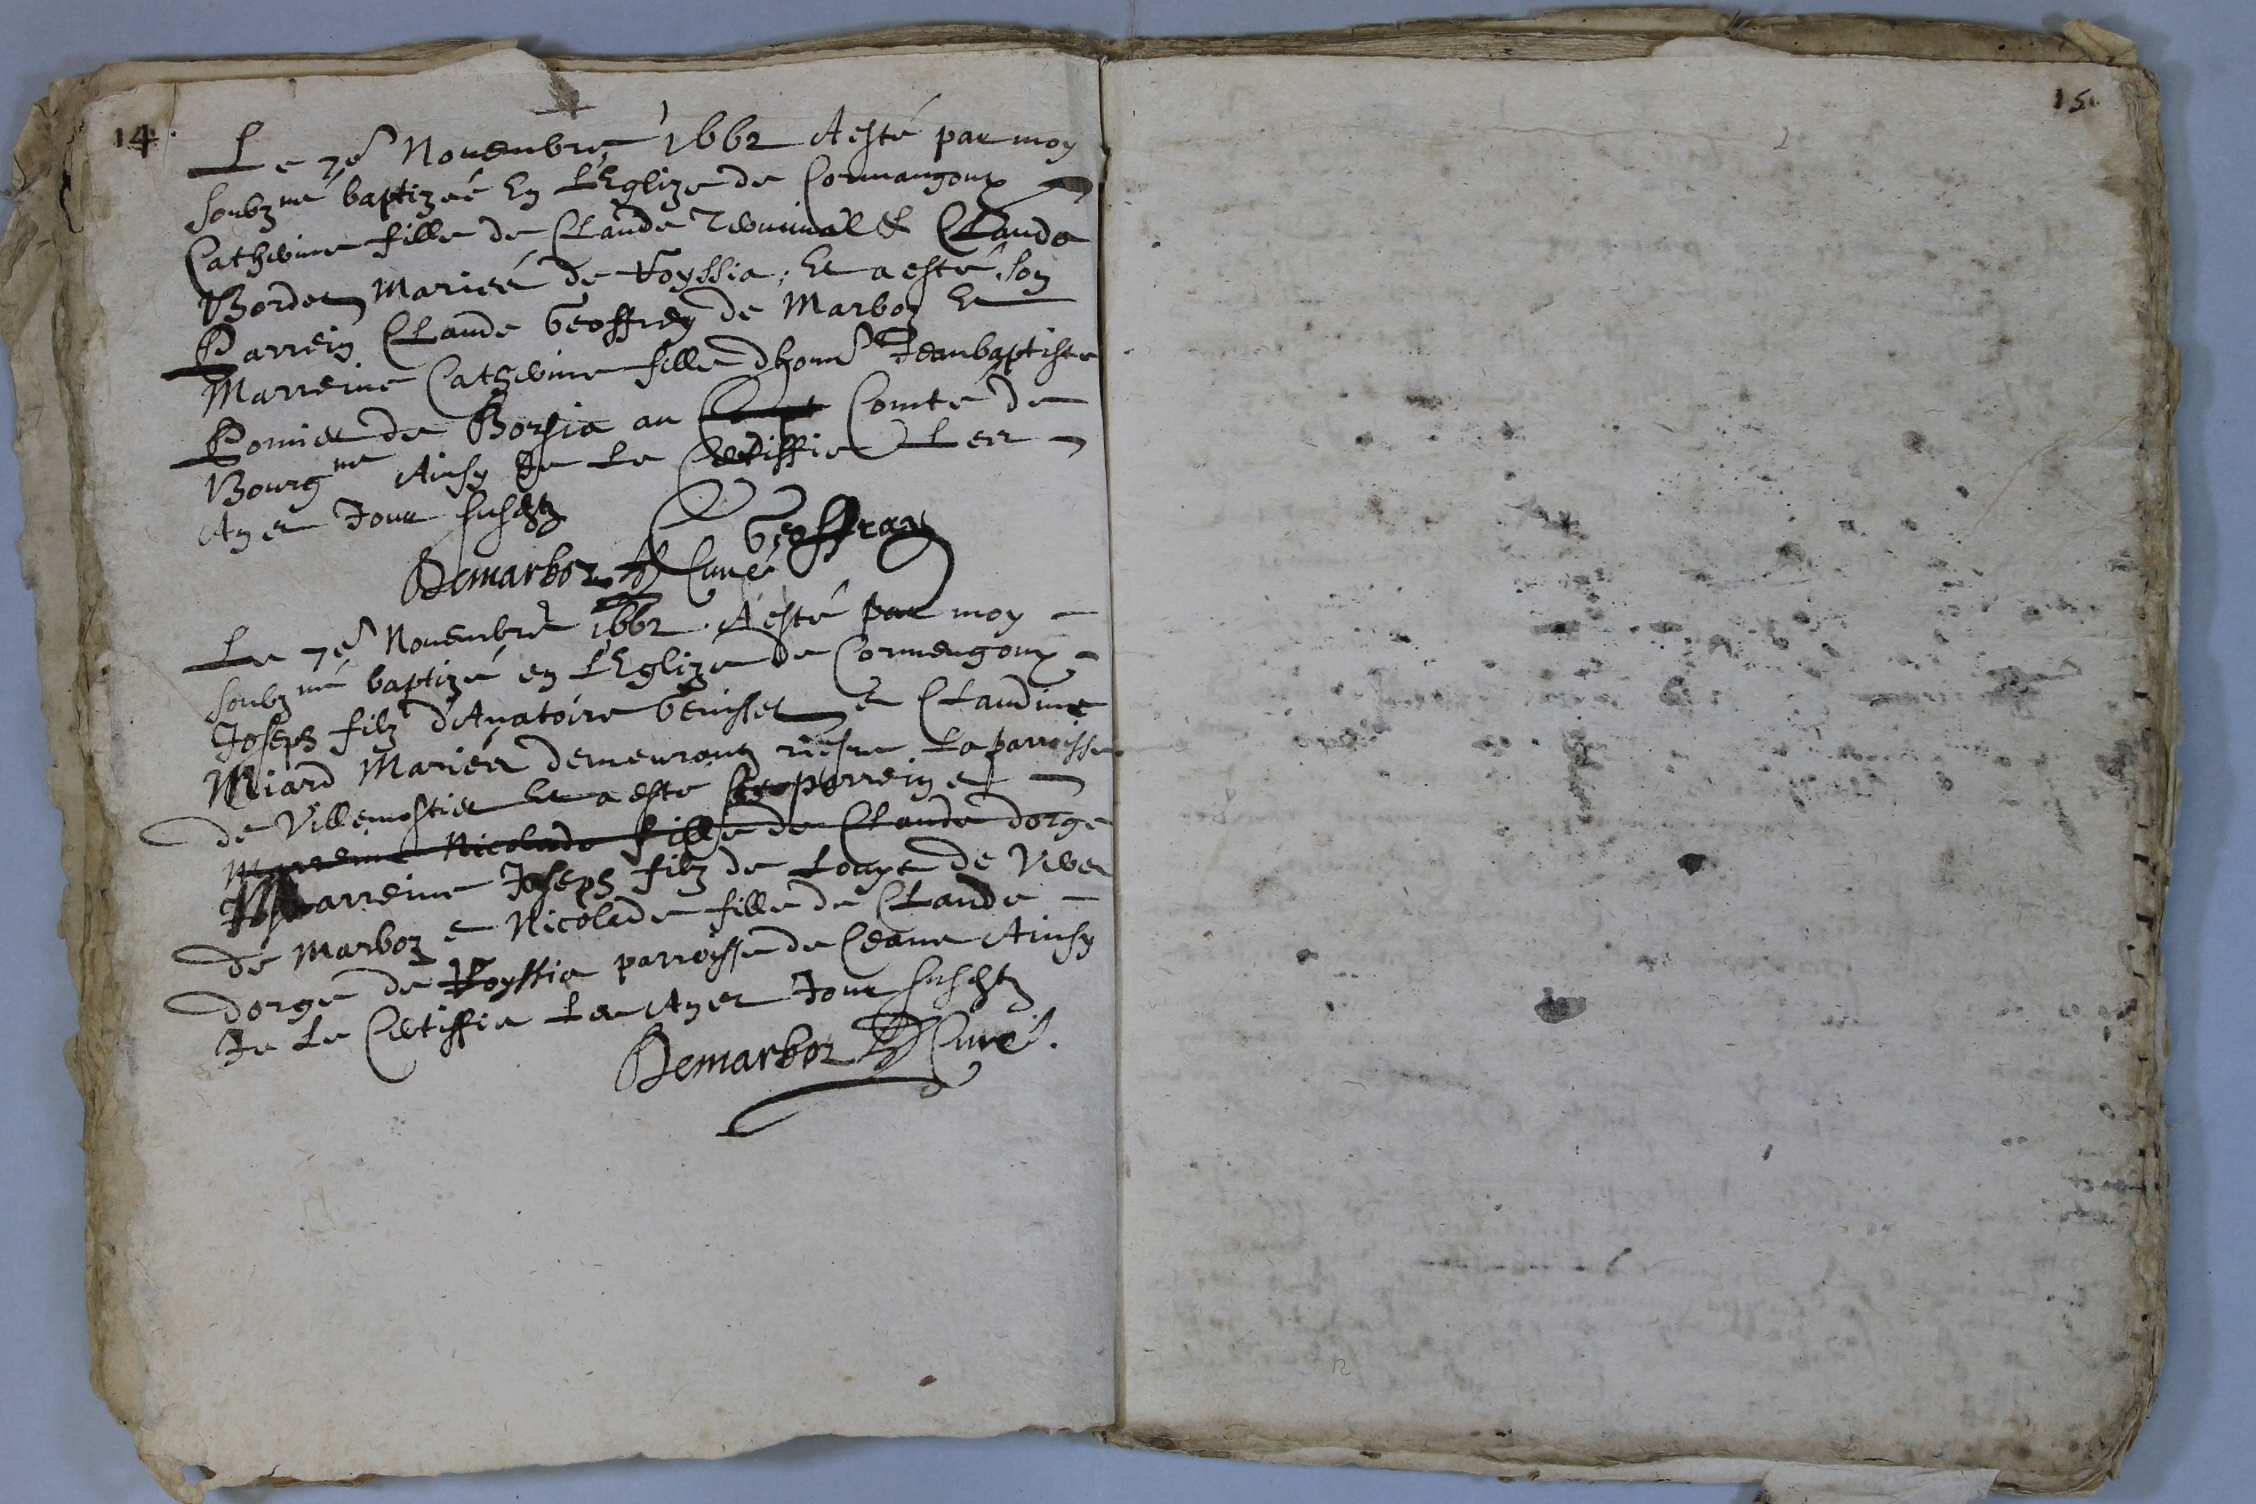 14.
Le 7e Novembre 1662 A esté par moy
soubz né baptizée En L'Eglize de Cormangoux
Catherine fille de Claude & Claude
Borde Mariée de Royssia, Et a esté son
Parrein Claude Geoffrey de Marboz Et
Marreine Catherine fille dhonn Jeanbaptiste
de Borsia au Comté de
Bourg ne Ainsy Je Le Certiffie Les
An et Jour susdtz
Geoffray
Demarboz Curé
Le 7e Novembre 1662. A esté par moy
soubz né baptizé en L'Eglize de Cormengoux
Joseph filz d'Anatoire Genisset et Claudine
Miard Mariés demeurantz riesre La parroisse
de Villemostier Et a esté parrein et
Marreine Nicolade fille de Claude dorge
Marreine Joseph filz de Louys de
de Marboz et Nicolade fille de Claude
dorge de Royssia parroisse de Ainsy
Je Le Certiffie Les An et Jour susdtz
Demarboz Curé.
15